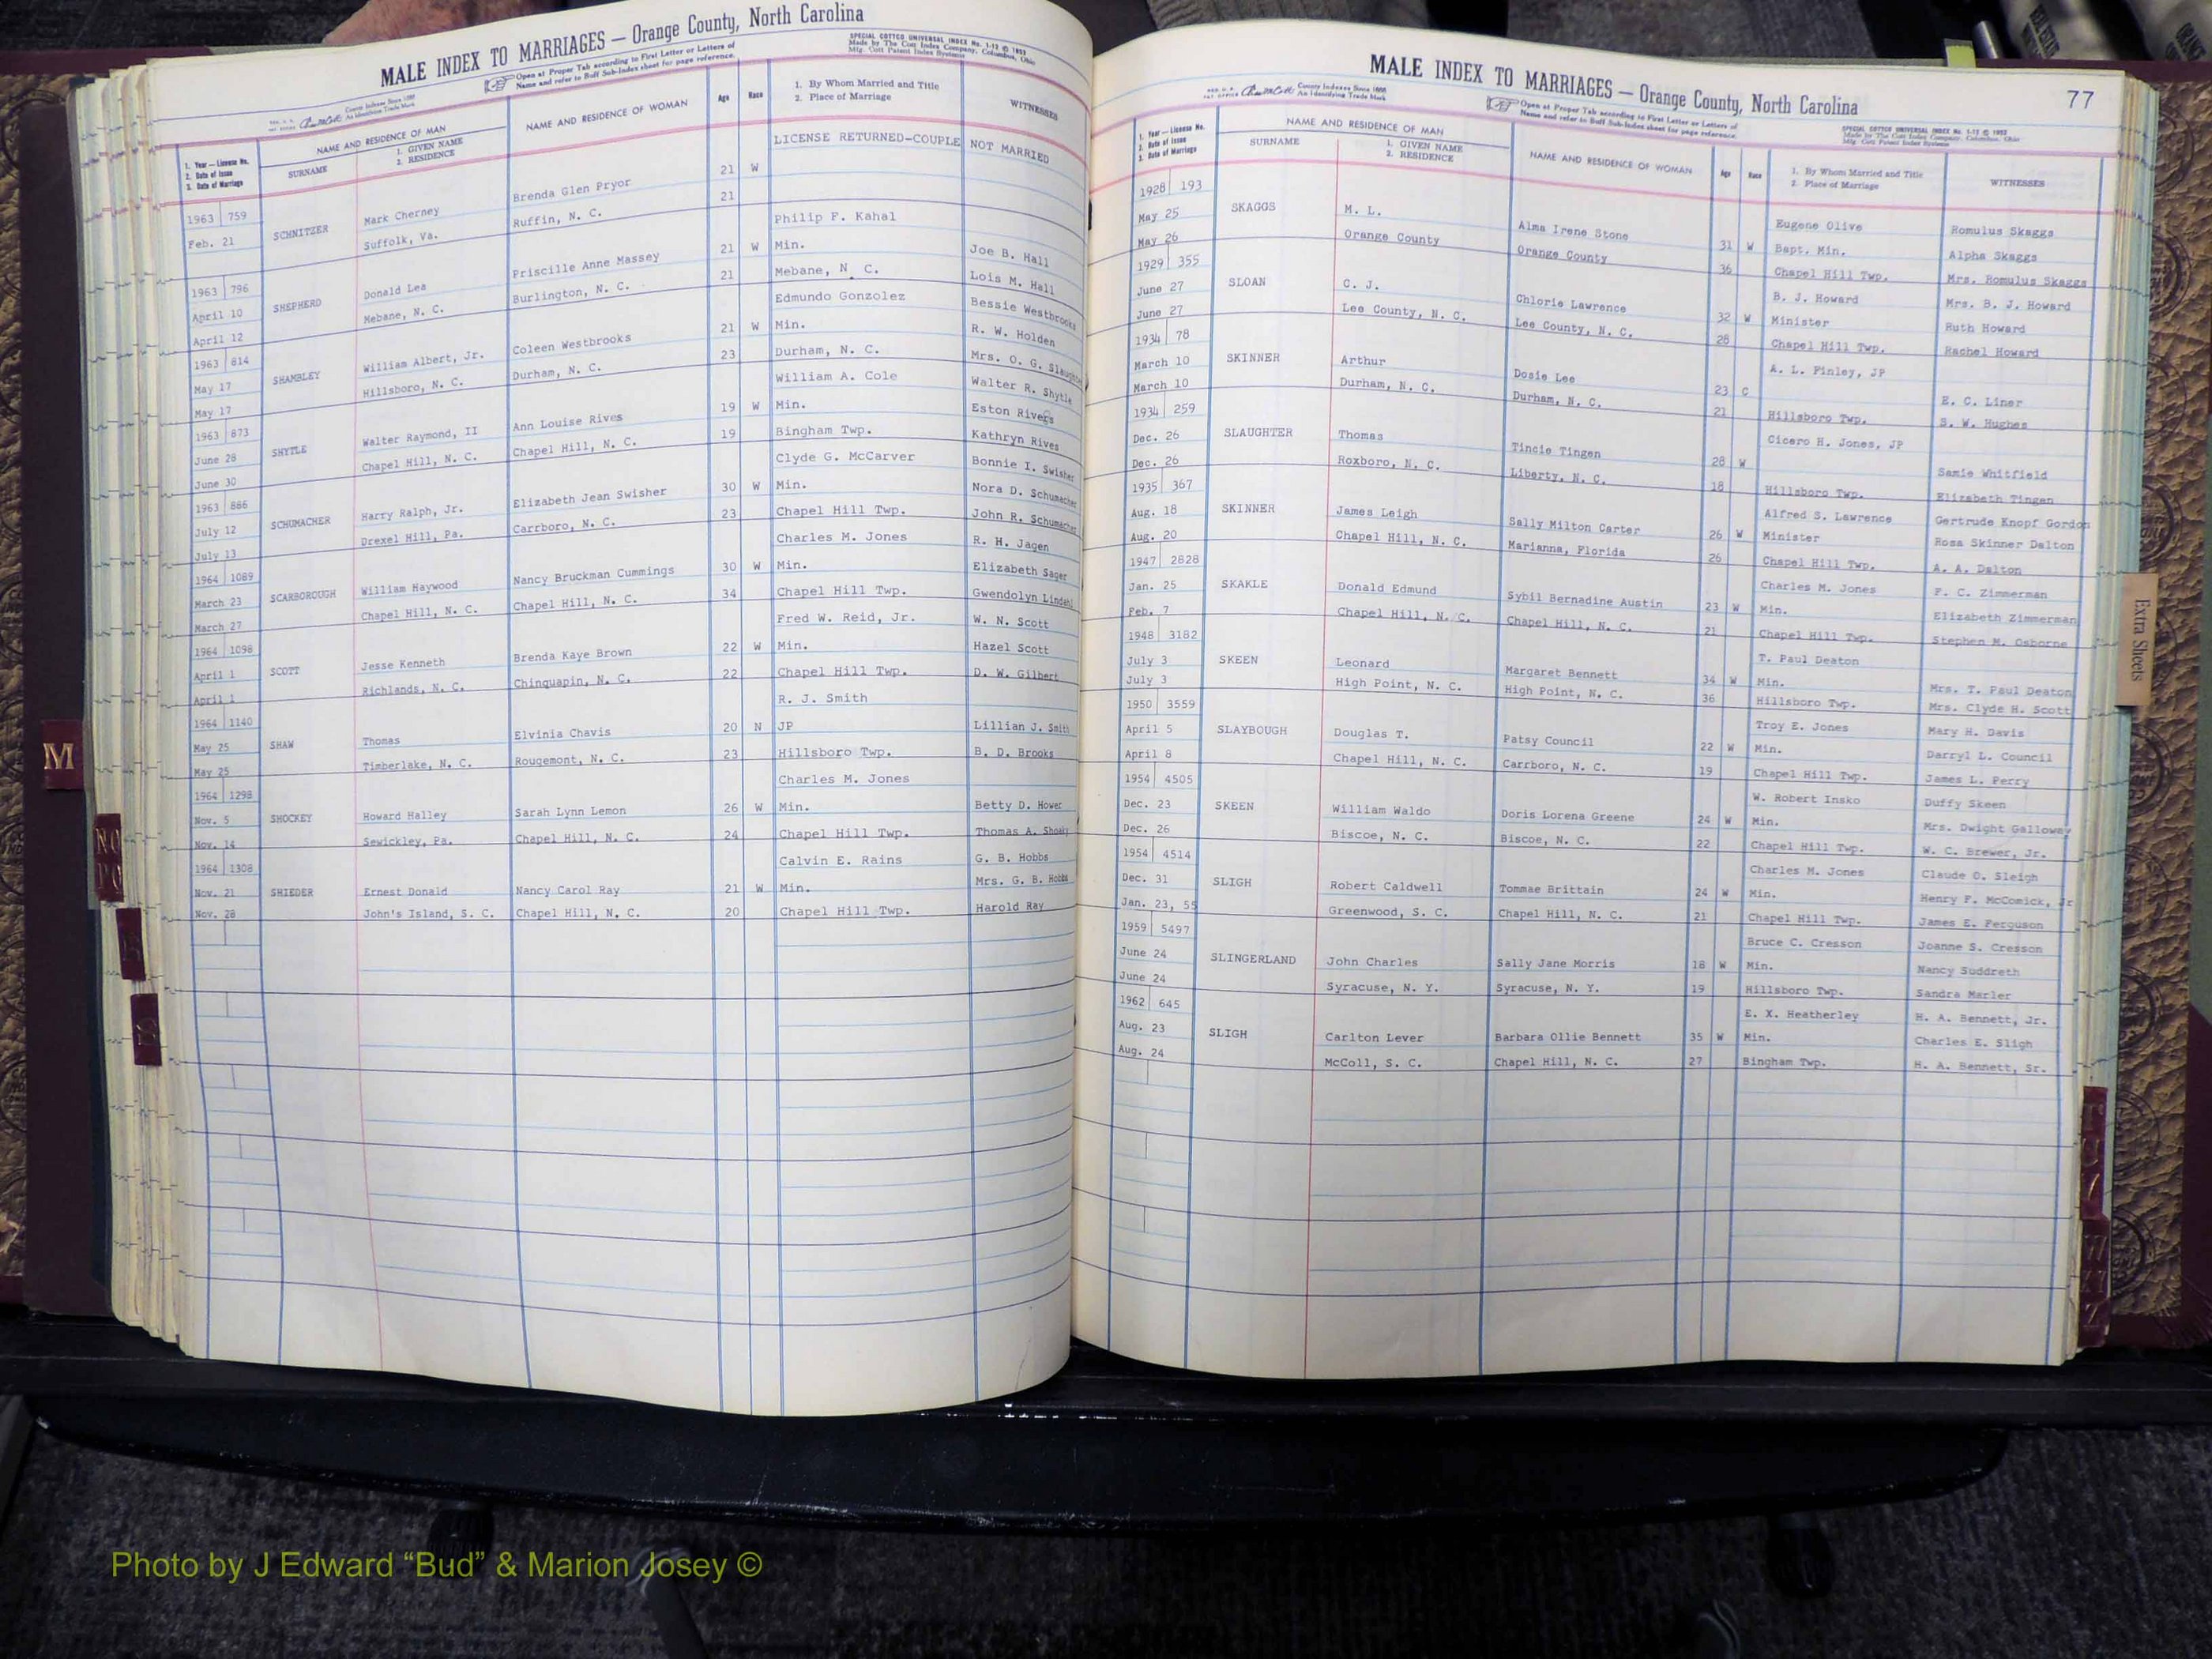 MALE INDEX TO MARRIAGES — Orange County, North Carolina
Open at Proper Tab according to First Letter or Letters of
Name and refer to Buff Sub-Index sheet for page reference.
SPECIAL COTTCO UNIVERSAL INDEX No. 1-12 © 1953
Made by The Cott Index Company, Columbus, Ohio
Mfg. Cott Patent Index Systems
County Indexes Since 1888
An Identifying Trade Mark
1. Year — License No.
2. Date of Issue
3. Date of Marriage
NAME AND RESIDENCE OF MAN
SURNAME
1. GIVEN NAME
2. RESIDENCE
NAME AND RESIDENCE OF WOMAN
Age
Race
1. By Whom Married and Title
2. Place of Marriage
WITNESSES
LICENSE RETURNED-COUPLE NOT MARRIED
1963 759
Feb. 21
SCHNITZER
Mark Cherney
Suffolk, Va.
Brenda Glen Pryor
Ruffin, N. C.
21 W
21
1963 796
April 10
April 12
SHEPHERD
Donald Lea
Mebane, N. C.
Priscille Anne Massey
Burlington, N. C.
21 W
21
Philip F. Kahal
Min.
Mebane, N. C.
Joe B. Hall
Lois M. Hall
1963 814
May 17
May 17
SHAMBLEY
William Albert, Jr.
Hillsboro, N. C.
Coleen Westbrooks
Durham, N. C.
21 W
23
Edmundo Gonzolez
Min.
Durham, N. C.
Bessie Westbrooks
R. W. Holden
Mrs. O. G. Slaughte
1963 873
June 28
June 30
SHYTLE
Walter Raymond, II
Chapel Hill, N. C.
Ann Louise Rives
Chapel Hill, N. C.
19 W
19
William A. Cole
Min.
Bingham Twp.
Walter R. Shytle
Eston Rivers
Kathryn Rives
1963 886
July 12
July 13
SCHUMACHER
Harry Ralph, Jr.
Drexel Hill, Pa.
Elizabeth Jean Swisher
Carrboro, N. C.
30 W
23
Clyde G. McCarver
Min.
Chapel Hill Twp.
Bonnie I. Swisher
Nora D. Schumacher
John R. Schumacher
1964 1089
March 23
March 27
SCARBOROUGH
William Haywood
Chapel Hill, N. C.
Nancy Bruckman Cummings
Chapel Hill, N. C.
30 W
34
Charles M. Jones
Min.
Chapel Hill Twp.
R. H. Jagen
Elizabeth Sager
Gwendolyn Lindahl
1964 1098
April 1
April 1
SCOTT
Jesse Kenneth
Richlands, N. C.
Brenda Kaye Brown
Chinquapin, N. C.
22 W
22
Fred W. Reid, Jr.
Min.
Chapel Hill Twp.
W. N. Scott
Hazel Scott
D. W. Gilbert
1964 1140
May 25
May 25
SHAW
Thomas
Timberlake, N. C.
Elvinia Chavis
Rougemont, N. C.
20 N
23
R. J. Smith
JP
Hillsboro Twp.
Lillian J. Smith
B. D. Brooks
1964 1298
Nov. 5
Nov. 14
SHOCKEY
Howard Halley
Sewickley, Pa.
Sarah Lynn Lemon
Chapel Hill, N. C.
26 W
24
Charles M. Jones
Min.
Chapel Hill Twp.
Betty D. Hower
Thomas A.
1964 1308
Nov. 21
Nov. 28
SHIEDER
Ernest Donald
John's Island, S. C.
Nancy Carol Ray
Chapel Hill, N. C.
21 W
20
Calvin E. Rains
Min.
Chapel Hill Twp.
G. B. Hobbs
Mrs. G. B. Hobbs
Harold Ray
MALE INDEX TO MARRIAGES — Orange County, North Carolina
77
County Indexes Since 1888
An Identifying Trade Mark
Open at Proper Tab according to First Letter or Letters of
Name and refer to Buff Sub-Index sheet for page reference.
SPECIAL COTTCO UNIVERSAL INDEX No. 1-12 © 1953
Made by The Cott Index Company, Columbus, Ohio
Mfg. Cott Patent Index Systems
1. Year — License No.
2. Date of Issue
3. Date of Marriage
NAME AND RESIDENCE OF MAN
SURNAME
1. GIVEN NAME
2. RESIDENCE
NAME AND RESIDENCE OF WOMAN
Age
Race
1. By Whom Married and Title
2. Place of Marriage
WITNESSES
1928 193
May 25
May 26
SKAGGS
M. L.
Orange County
Alma Irene Stone
Orange County
31 W
36
Eugene Olive
Bapt. Min.
Chapel Hill Twp.
Romulus Skaggs
Alpha Skaggs
Mrs. Romulus Skaggs
1929 355
June 27
June 27
SLOAN
C. J.
Lee County, N. C.
Chlorie Lawrence
Lee County, N. C.
32 W
28
B. J. Howard
Minister
Chapel Hill Twp.
Mrs. B. J. Howard
Ruth Howard
Rachel Howard
1934 78
March 10
March 10
SKINNER
Arthur
Durham, N. C.
Dosie Lee
Durham, N. C.
23 C
21
A. L. Finley, JP
Hillsboro Twp.
E. C. Liner
S. W. Hughes
1934 259
Dec. 26
Dec. 26
SLAUGHTER
Thomas
Roxboro, N. C.
Tincie Tingen
Liberty, N. C.
28 W
18
Cicero H. Jones, JP
Hillsboro Twp.
Samie Whitfield
Elizabeth Tingen
1935 367
Aug. 18
Aug. 20
SKINNER
James Leigh
Chapel Hill, N. C.
Sally Milton Carter
Marianna, Florida
26 W
26
Alfred S. Lawrence
Minister
Chapel Hill Twp.
Gertrude Knopf Gordon
Rosa Skinner Dalton
A. A. Dalton
1947 2828
Jan. 25
Feb. 7
SKAKLE
Donald Edmund
Chapel Hill, N. C.
Sybil Bernadine Austin
Chapel Hill, N. C.
23 W
21
Charles M. Jones
Min.
Chapel Hill Twp.
F. C. Zimmerman
Elizabeth Zimmerman
Stephen M. Osborne
1948 3182
July 3
July 3
SKEEN
Leonard
High Point, N. C.
Margaret Bennett
High Point, N. C.
34 W
36
T. Paul Deaton
Min.
Hillsboro Twp.
Mrs. T. Paul Deaton
Mrs. Clyde H. Scott
1950 3559
April 5
April 8
SLAYBOUGH
Douglas T.
Chapel Hill, N. C.
Patsy Council
Carrboro, N. C.
22 W
19
Troy E. Jones
Min.
Chapel Hill Twp.
Mary H. Davis
Darryl L. Council
James L. Perry
1954 4505
Dec. 23
Dec. 26
SKEEN
William Waldo
Biscoe, N. C.
Doris Lorena Greene
Biscoe, N. C.
24 W
22
W. Robert Insko
Min.
Chapel Hill Twp.
Duffy Skeen
Mrs. Dwight Galloway
W. C. Brewer, Jr.
1954 4514
Dec. 31
Jan. 23, 55
SLIGH
Robert Caldwell
Greenwood, S. C.
Tommae Brittain
Chapel Hill, N. C.
24 W
21
Charles M. Jones
Min.
Chapel Hill Twp.
Claude O. Sleigh
Henry F. McComick, Jr
James E. Ferguson
1959 5497
June 24
June 24
SLINGERLAND
John Charles
Syracuse, N. Y.
Sally Jane Morris
Syracuse, N. Y.
18 W
19
Bruce C. Cresson
Min.
Hillsboro Twp.
Joanne S. Cresson
Nancy Suddreth
Sandra Marler
1962 645
Aug. 23
Aug. 24
SLIGH
Carlton Lever
McColl, S. C.
Barbara Ollie Bennett
Chapel Hill, N. C.
35 W
27
E. X. Heatherley
Min.
Bingham Twp.
H. A. Bennett, Jr.
Charles E. Sligh
H. A. Bennett, Sr.
Extra Sheets
M
Photo by J Edward “Bud” & Marion Josey ©